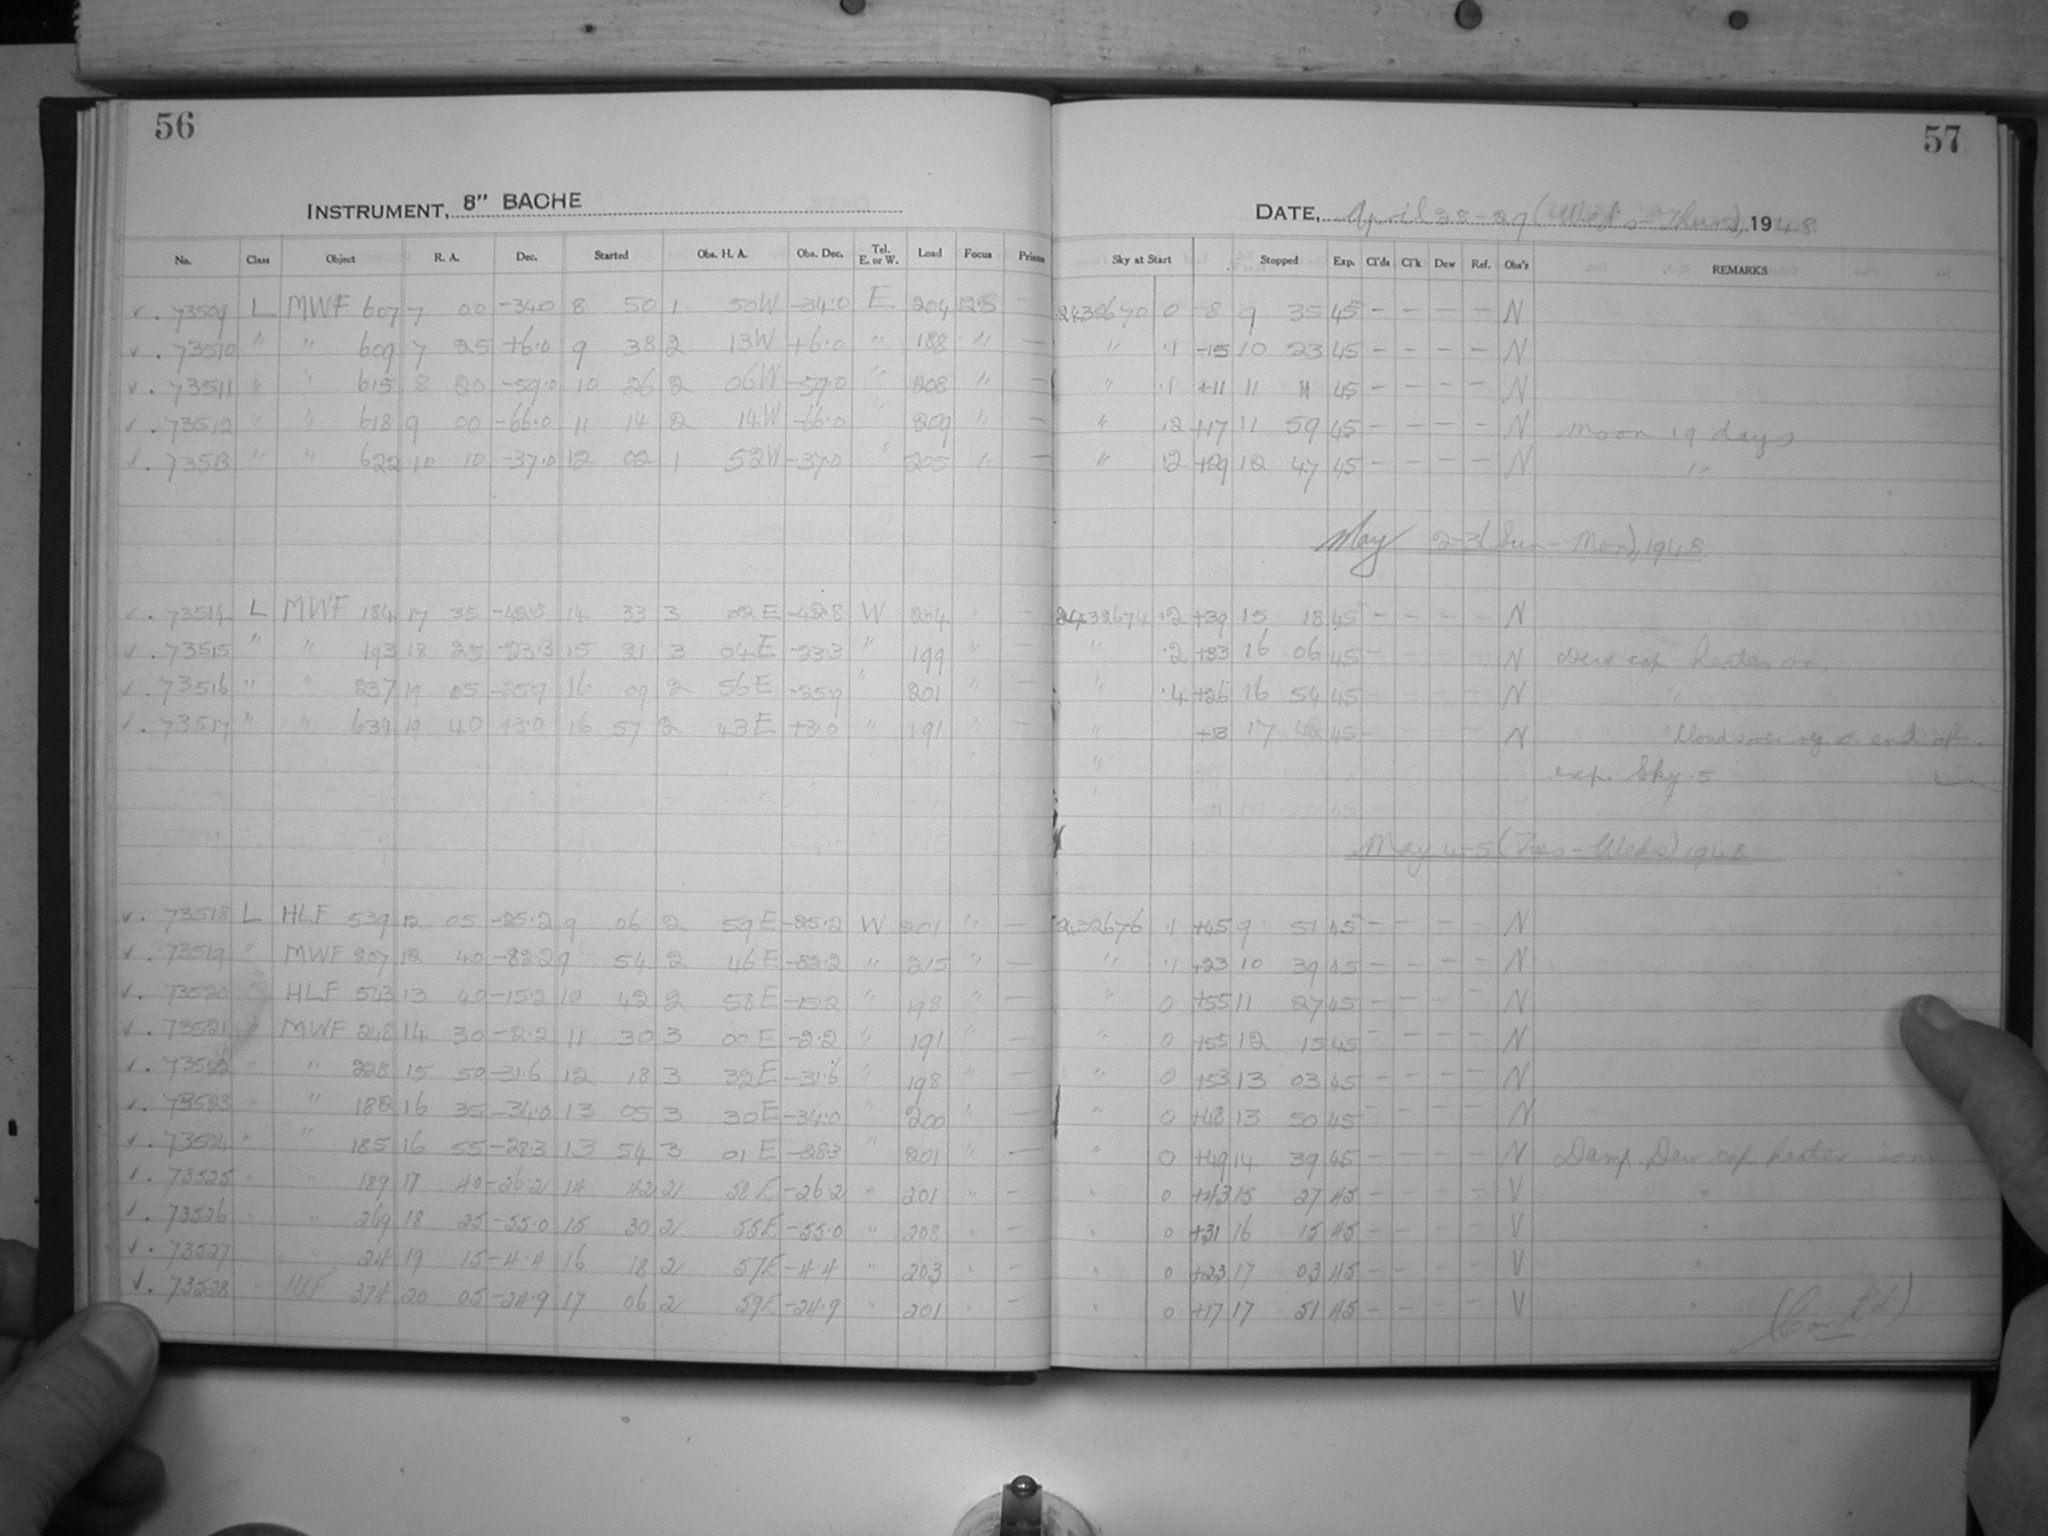 56
57
INSTRUMENT, 8" BACHE
DATE, April 28-29 (Wed's-Thurs), 1948
No. Class Object R. A. Dec. Started Obs. H. A. Obs. Dec. Tel. E. or W. Load Focus Prism Sky at Start Stopped Exp. Cl'ds Cl'k Dew Ref. Obs'r REMARKS
✓. 73509 L MWF 607 7 00 -34.0 8 50 1 50W -34.0 E 204 12.8 — 2432670 0 -8 9 35 45m - - - - N
✓. 73510 " " 609 7 25 +6.0 9 38 2 13W +6.0 " 188 " — " .1 -15 10 23 45 - - - - N
✓. 73511 " " 615 8 20 -59.0 10 26 2 06W -59.0 " 208 " — " .1 +11 11 11 45 - - - - N
✓. 73512 " " 618 9 00 -66.0 11 14 2 14W -66.0 " 209 " — " .2 +17 11 59 45 - - - - N Moon 19 days
✓. 73513 " " 622 10 10 -37.0 12 02 1 52W -37.0 " 205 " — " .2 +29 12 47 45 - - - - N "
May 2-3 (Sun-Mon), 1948
✓. 73514 L MWF 184 17 35 -42.8 14 33 3 02E -42.8 W 204 " — 2432674 .2 +39 15 18 45 - - - - N
✓. 73515 " " 193 18 25 -23.3 15 21 3 04E -23.3 " 199 " — " .2 +33 16 06 45 - - - - N Dew cap heater on.
✓. 73516 " " 237 19 05 -25.9 16 09 2 56E -25.9 " 201 " — " .4 +26 16 54 45 - - - - N "
✓. 73517 " " 634 19 40 +3.0 16 57 2 43E +3.0 " 191 " — " +13 17 42 45 - - - - N " Cloud over at end of
" exp. Sky .5
May 4-5 (Tues-Weds) 1948
✓. 73518 L HLF 539 12 05 -25.2 9 06 2 59E -25.2 W 201 " — 2432676 .1 +45 9 51 45m - - - - N
✓. 73519 " MWF 207 12 40 -82.2 9 54 2 46E -82.2 " 215 " — " .1 +23 10 39 45 - - - - N
✓. 73520 " HLF 543 13 40 -15.2 10 42 2 58E -15.2 " 198 " — " 0 +55 11 27 45 - - - - N
✓. 73521 " MWF 248 14 30 -2.2 11 30 3 00E -2.2 " 191 " — " 0 +55 12 15 45 - - - - N
✓. 73522 " " 228 15 50 -31.6 12 18 3 32E -31.6 " 198 " — " 0 +53 13 03 45 - - - - N
✓. 73523 " " 182 16 35 -34.0 13 05 3 30E -34.0 " 200 " — " 0 +48 13 50 45 - - - - N
✓. 73524 " " 185 16 55 -28.3 13 54 3 01E -28.3 " 201 " — " 0 +49 14 39 45 - - - - N Damp. Dew cap heater on.
✓. 73525 " " 189 17 40 -26.2 14 42 2 58E -26.2 " 201 " — " 0 +43 15 27 45 - - - - V "
✓. 73526 " " 269 18 25 -55.0 15 30 2 55E -55.0 " 208 " — " 0 +31 16 15 45 - - - - V "
✓. 73527 " " 24 19 15 -4.4 16 18 2 57E -4.4 " 203 " — " 0 +23 17 03 45 - - - - V "
✓. 73528 " HLF 374 20 05 -24.9 17 06 2 59E -24.9 " 201 " — " 0 +17 17 51 45 - - - - V "
(Cont'd)